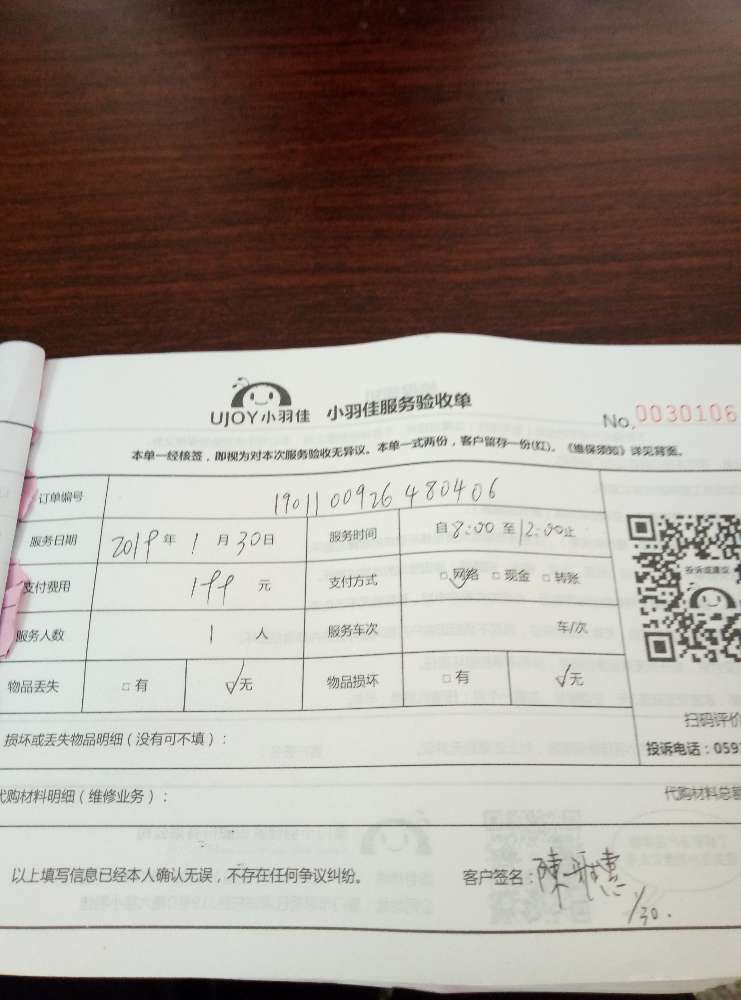 UJOY小羽佳 小羽佳服务验收单
No.0030106
本单一经核签，即视为对本次服务验收无异议。本单一式两份，客户留存一份(红)。《维保须知》详见背面。
订单编号 1901100926480406
服务日期 2019年 1 月 30日 服务时间 自 8:00 至 12:00止
投诉或建议
支付费用 199 元 支付方式 □网络 □现金 □转账
服务人数 1 人 服务车次 车/次
物品丢失 □有 √无 物品损坏 □有 √无
扫码评价
损坏或丢失物品明细（没有可不填）：
投诉电话：059
代购材料明细（维修业务）： 代购材料总额
以上填写信息已经本人确认无误，不存在任何争议纠纷。 客户签名：陳雅惠
1/30.